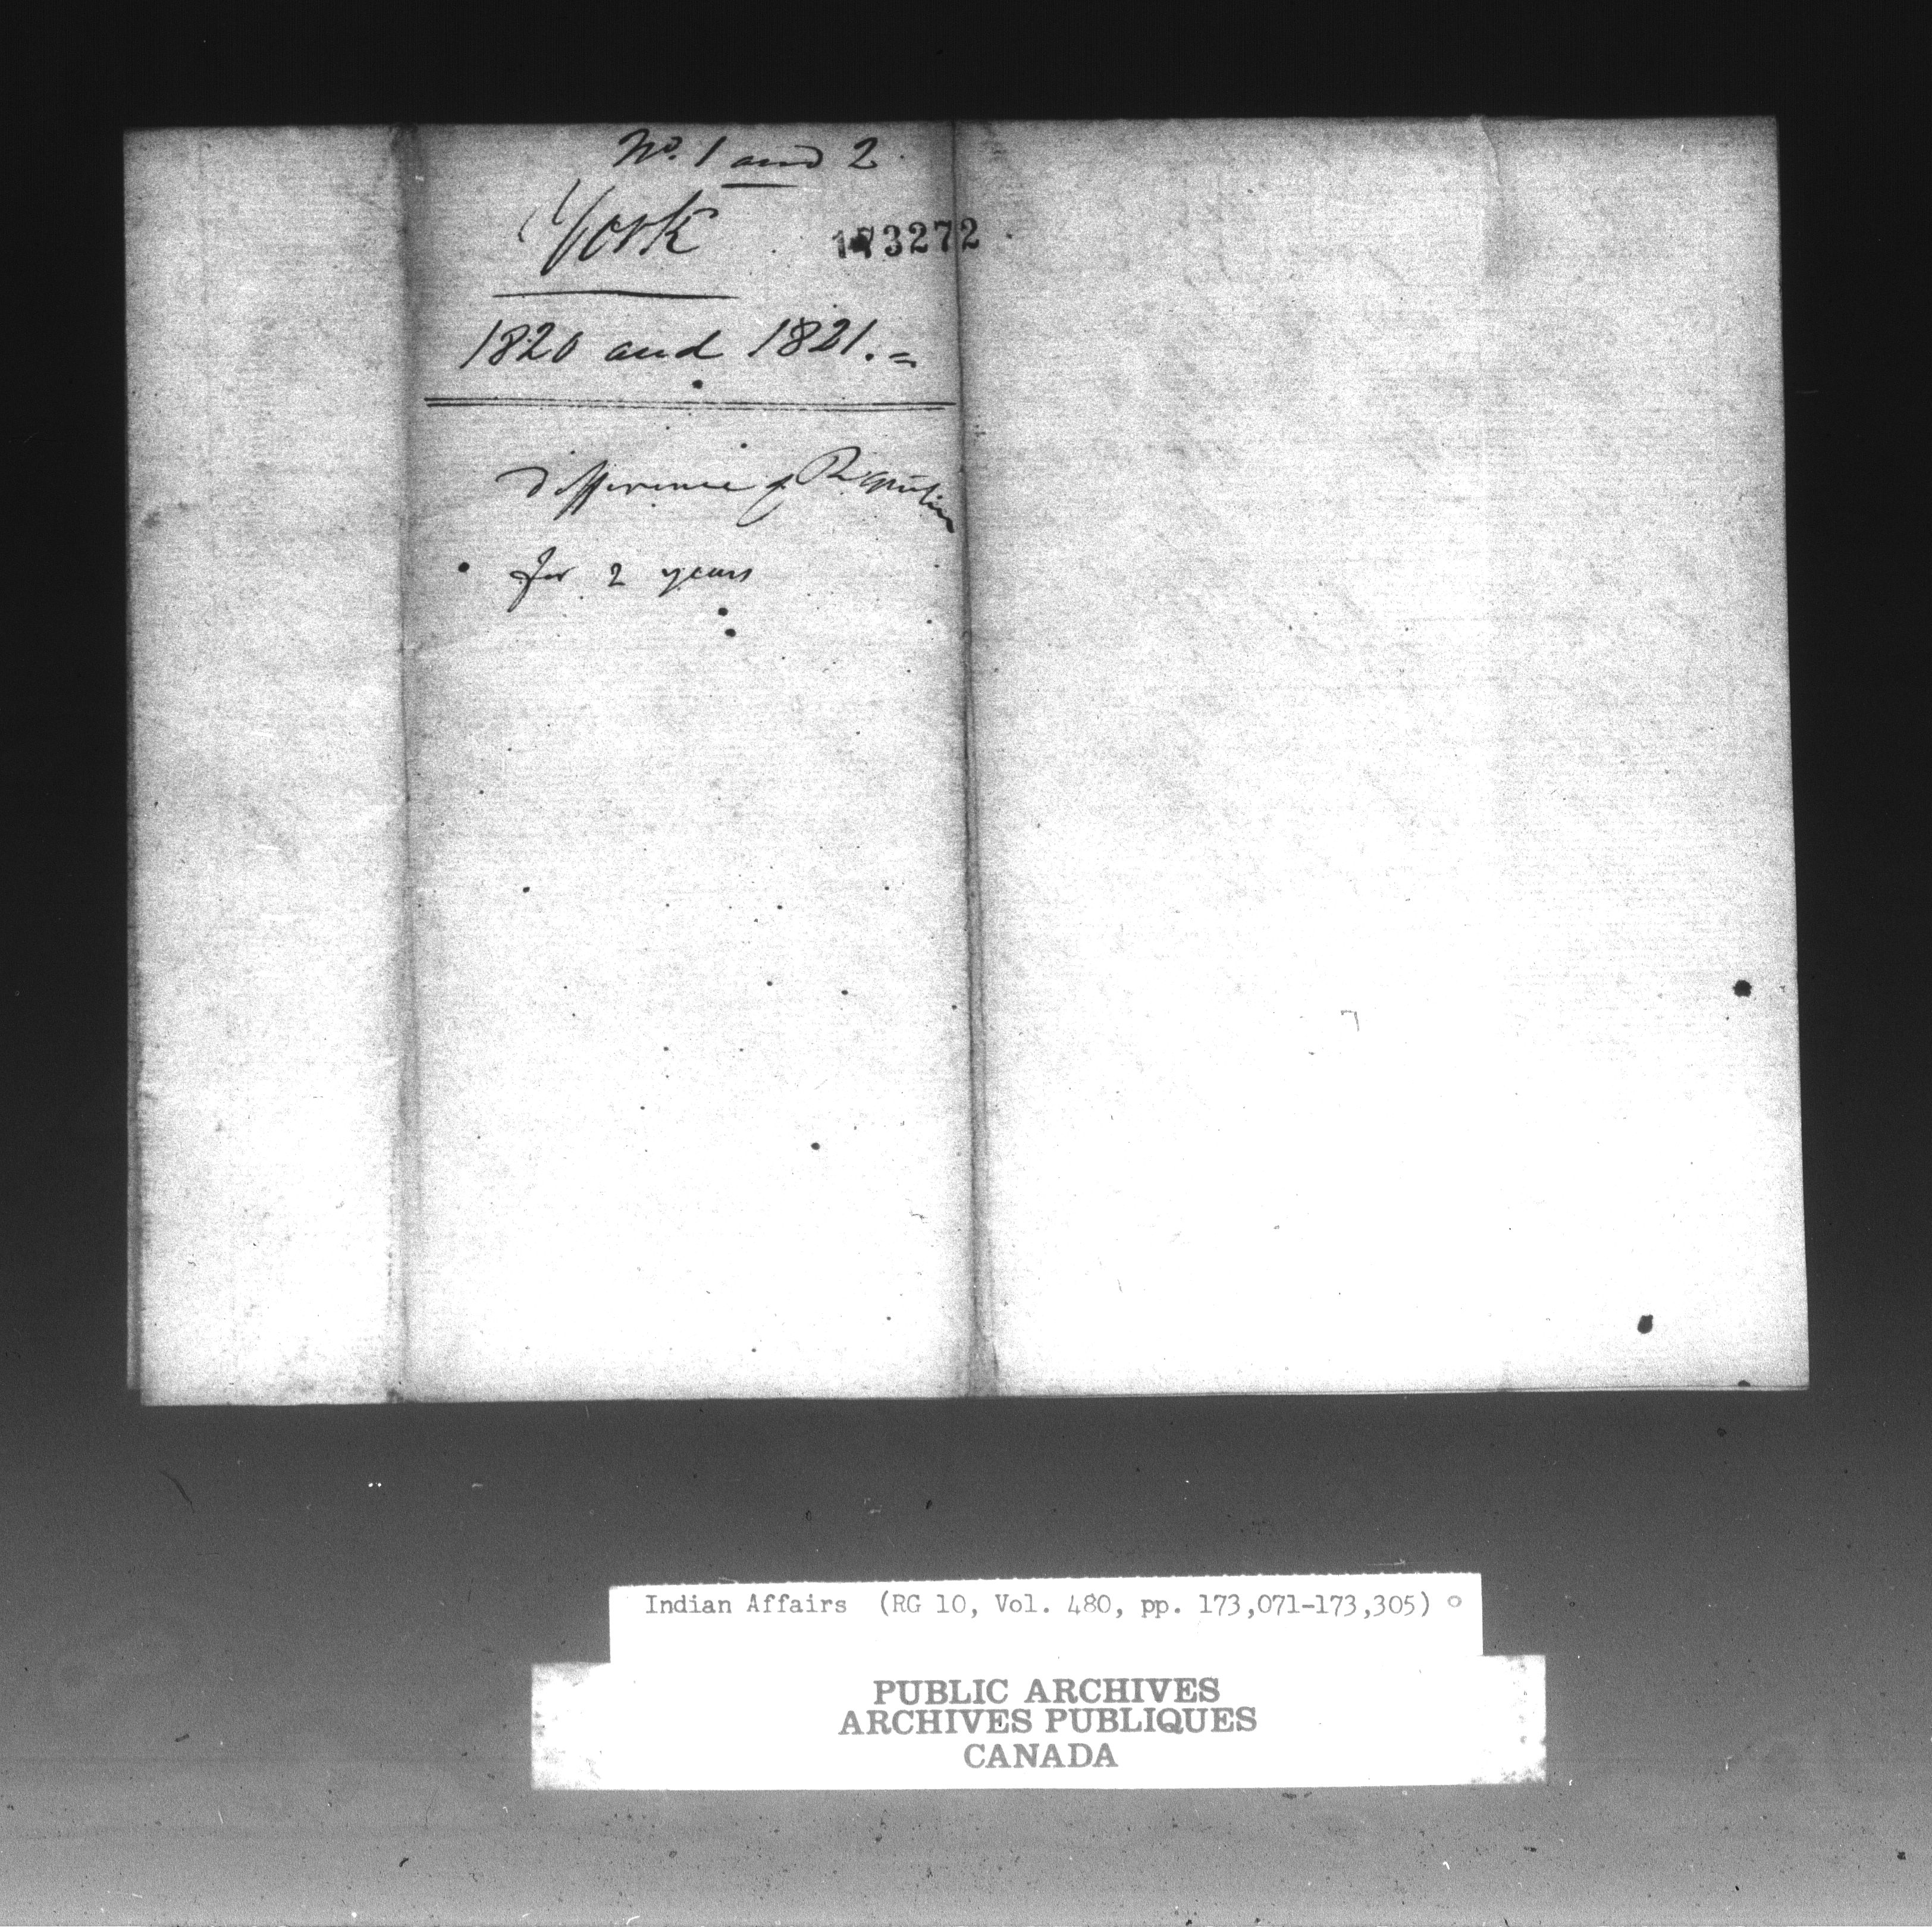 No. 1 and 2
York
173272
1820 and 1821.=
Difference of Requisition
for 2 years
Indian Affairs (RG 10, Vol. 480, pp. 173,071-173,305)
PUBLIC ARCHIVES
ARCHIVES PUBLIQUES
CANADA